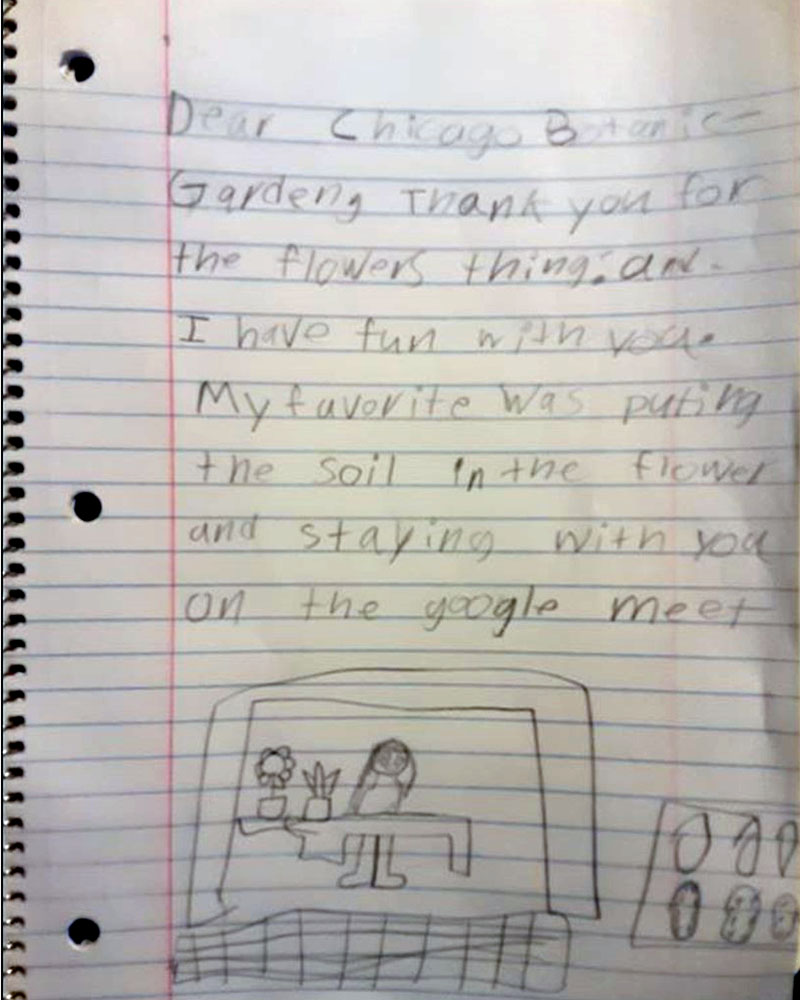 Dear Chicago Botanic
Gardeng Thank you for
the flowers thing. and
I have fun with you.
My favorite was puting
the soil in the flower
and staying with you
on the google meet